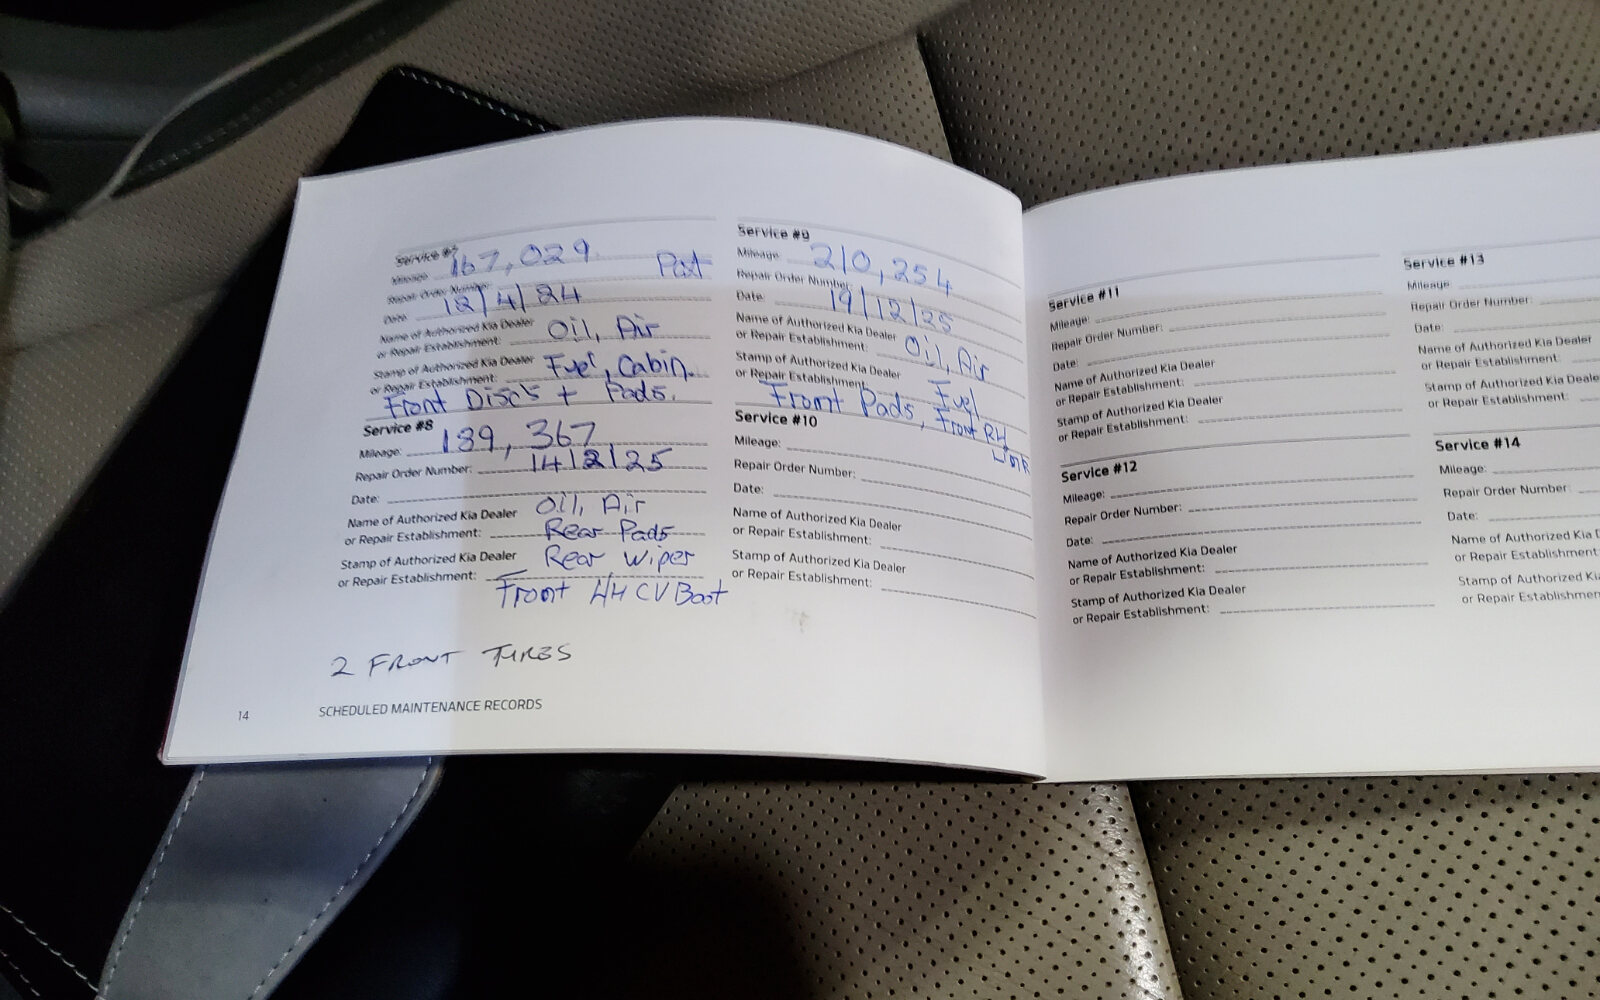 Service #7
Mileage: 167,029
Repair Order Number:
Date: 12/4/24
Name of Authorized Kia Dealer
or Repair Establishment: Oil, Air
Stamp of Authorized Kia Dealer
or Repair Establishment: Fuel, Cabin.
Front Disc's + Pads.
Service #8
Mileage: 189,367
Repair Order Number: 14/2/25
Date:
Name of Authorized Kia Dealer Oil, Air
or Repair Establishment: Rear Pads
Stamp of Authorized Kia Dealer Rear Wiper
or Repair Establishment:
Front L/H CV Boot
2 FRONT TYRES
14 SCHEDULED MAINTENANCE RECORDS
Service #9
Mileage: 210,254
Repair Order Number:
Date: 19/12/25
Name of Authorized Kia Dealer
or Repair Establishment: Oil, Air
Stamp of Authorized Kia Dealer
or Repair Establishment: Fuel
Front Pads, Front RH
Service #10
Mileage:
Repair Order Number:
Date:
Name of Authorized Kia Dealer
or Repair Establishment:
Stamp of Authorized Kia Dealer
or Repair Establishment:
Service #11
Mileage:
Repair Order Number:
Date:
Name of Authorized Kia Dealer
or Repair Establishment:
Stamp of Authorized Kia Dealer
or Repair Establishment:
Service #12
Mileage:
Repair Order Number:
Date:
Name of Authorized Kia Dealer
or Repair Establishment:
Stamp of Authorized Kia Dealer
or Repair Establishment:
Service #13
Mileage:
Repair Order Number:
Date:
Name of Authorized Kia Dealer
or Repair Establishment:
Stamp of Authorized Kia Deale
or Repair Establishment:
Service #14
Mileage:
Repair Order Number:
Date:
Name of Authorized Kia
or Repair Establishment
Stamp of Authorized Kia
or Repair Establishmen